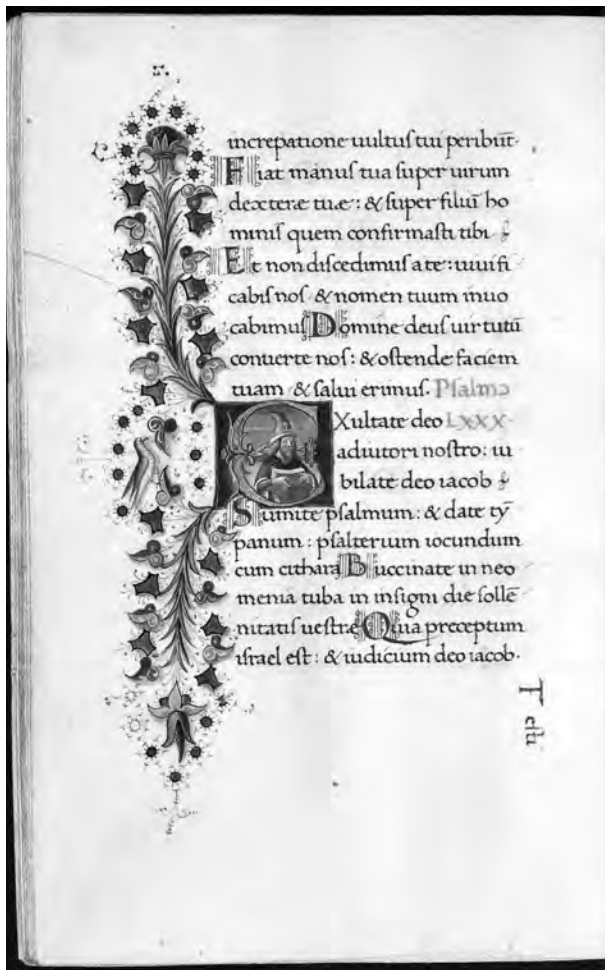 increpatione uultus tui peribūt·
Fiat manus tua super uirum
dexteræ tuæ: & super filiū ho
minis quem confirmasti tibi
Et non discedimus a te: uiuifi
cabis nos & nomen tuum inuo
cabimus Domine deus uirtutū
conuerte nos: & ostende faciem
tuam & salui erimus. Psalmo
Exultate deo LXXX·
adiutori nostro: iu
bilate deo iacob
Sumite psalmum: & date ty̅
panum: psalterium iocundum
cum cithara Buccinate in neo
menia tuba in insigni die sollē
nitatis uestræ Quia preceptum
israel est: & iudicium deo iacob·